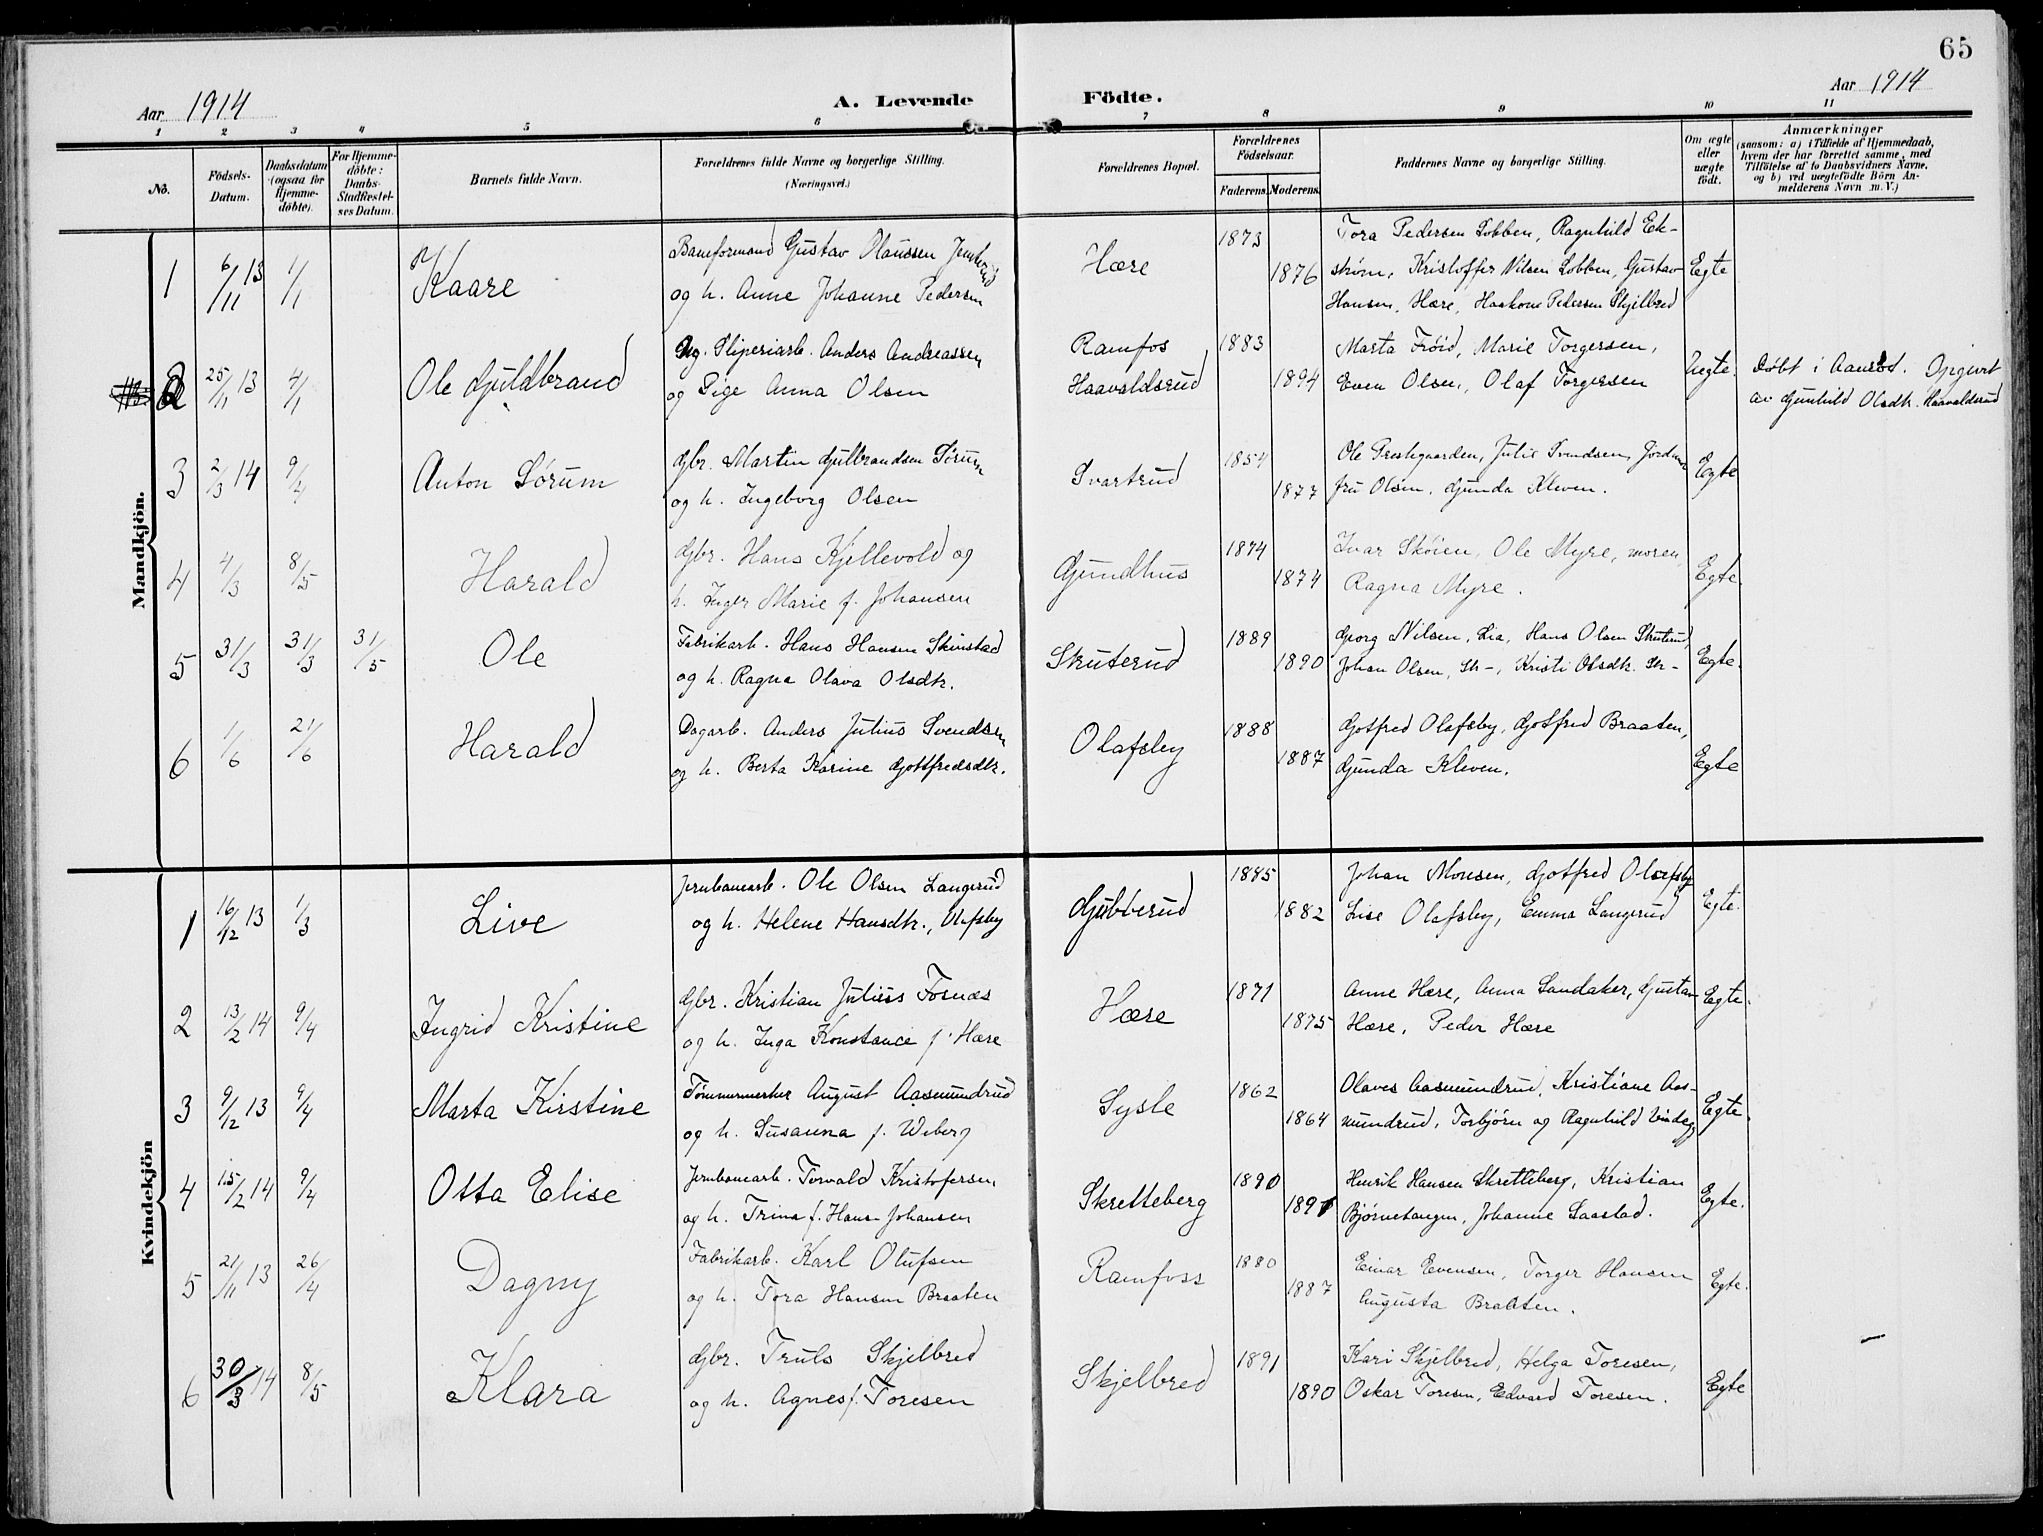 65
Aar 1914 A. Levende Födte. Aar 1914
1 2 3 4 5 6 7 8 9 10 11
No.
Födsels-
Datum.
Daabsdatum
(ogsaa for
Hjemme-
döbte).
For Hjemme-
döbte:
Daabs-
Stadfæstel-
ses Datum.
Barnets fulde Navn.
Forældrenes fulde Navne og borgerlige Stilling.
(Næringsvei.)
Forældrenes Bopæl.
Forældrenes
Födselsaar.
Faderens. Moderens.
Faddernes Navne og borgerlige Stilling.
Om ægte
eller
uægte
födt.
Anmærkninger
(saasom: a) i Tilfælde af Hjemmedaab,
hvem der har forrettet samme, med
Tilföielse af to Daabsvidners Navne,
og b) ved uægtefödte Börn An-
melderens Navn m. V.)
Mandkjön.
1 6/11 13 1/1 Kaare
Baneformand Gustav Olaussen
og h. Anne Johanne Pedersen
Hære 1873 1876
Tora Pedersen Lobben, Ragnhild Ek-
strøm, Kristoffer Nilsen Lobben, Gustav
Hansen, Hære, Haakone Pedersen Skjelbred
Egte
2 25/11 13 4/1 Ole Gjuldbrand
Ug. Sliperiarb. Anders Andreassen
og Pige Anna Olsen
Ramfos
Haavaldsrud
1883 1894
Marta Frøid, Marie Torgersen,
Even Olsen, Olaf Torgersen
Uegte
Døbt i Aamot. Opgivet
av Gunhild Olsdtr. Haavaldsrud
3 2/3 14 9/4 Anton Sørum
Gbr. Martin Gulbrandsen Sørum
og h. Ingeborg Olsen
Svartrud 1854 1877
Ole Prestegaarden, Julie Svendsen, Jordmor
fru Olsen, Gunda Kleven.
Egte
4 4/3 8/5 Harald
Gbr. Hans Kjellevold og
h. Inger Marie f. Johansen
Gundhus 1874 1874
Ivar Skøien, Ole Myre, moren,
Ragna Myre.
Egte
5 31/3 31/3 31/5 Ole
Fabrikarb. Hans Hansen Skinstad
og h. Ragna Olava Olsdtr.
Skuterud 1889 1890
Georg Nilsen, Lia, Hans Olsen Skuterud,
Johan Olsen, Sk-, Kristi Olsdtr. Sk-
Egte.
6 1/6 21/6 Harald
Dagarb. Anders Julius Svendsen
og h. Berta Karine Gottfredsdtr.
Olafsby 1888 1887
Gotfred Olafsby, Gotfred Braaten,
Gunda Kleven.
Egte
Kvindekjön
1 16/12 13 1/3 Live
Jernbanearb. Ole Olsen Langerud
og h. Helene Hansdtr., Olafsby
Gubberud 1885 1882
Johan Monsen, Gotfred Olafsby
Lise Olafsby, Emma Langerud
Egte.
2 13/2 14 9/4 Ingrid Kristine
Gbr. Kristian Julius Fosnæs
og h. Inga Konstance f. Hære
Hære 1871 1875
Anne Hære, Anna Sandaker, Gustav
Hære, Peder Hære
Egte.
3 9/12 13 9/4 Marta Kirstine
Tømmermerker August Aasmundrud
og h. Susanna f. Wiberg
Sysle 1862 1864
Olaves Aasmundrud, Kristiane Aas-
mundrud, Torbjørn og Ragnhild Vindegg
Egte.
4 15/2 14 9/4 Otta Elise
Jernbanearb. Torvald Kristofersen
og h. Trina f. Hans-Johansen
Skretteberg 1890 1891
Henrik Hansen Skretteberg, Kristian
Bjørnetangen, Johanne Saastad.
Egte.
5 21/11 13 26/4 Dagny
Fabrikarb. Karl Olufsen
og h. Tora Hansen Braaten
Ramfoss 1880 1887
Einar Evensen, Torger Hansen
Augusta Braaten.
Egte.
6 30/3 14 8/5 Klara
Gbr. Truls Skjelbred
og h. Agnes f. Toresen
Skjelbred 1891 1890
Kari Skjelbred, Helga Toresen,
Oskar Toresen, Edvard Toresen.
Egte